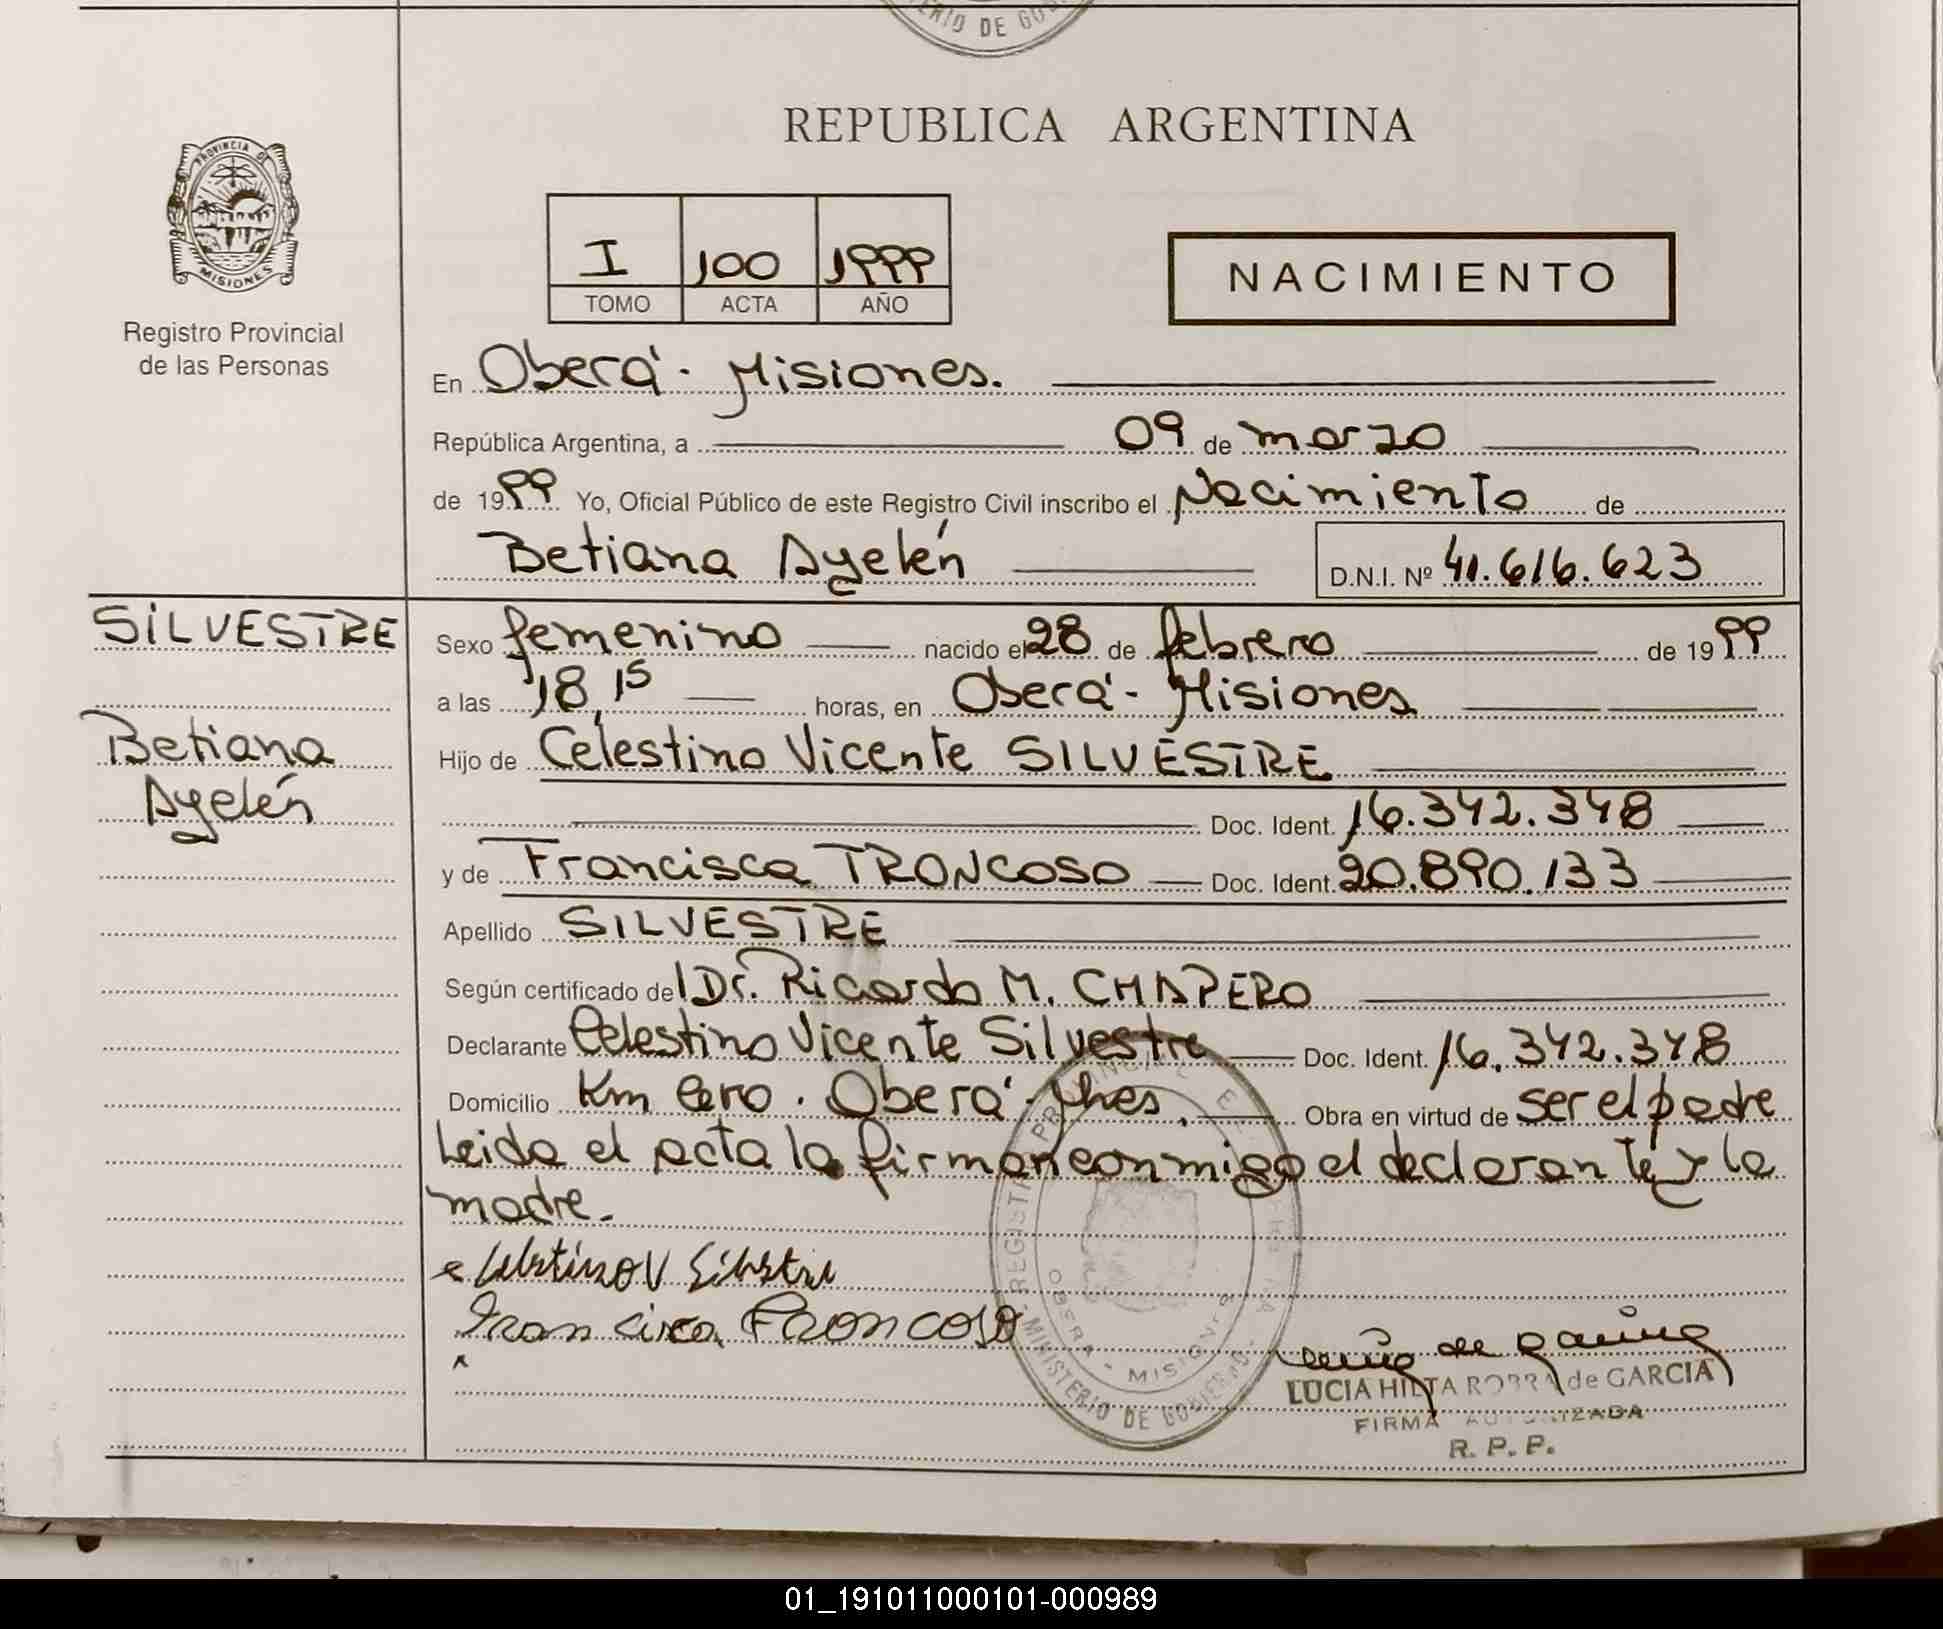 ERIO DE GOB
REPUBLICA ARGENTINA
PROVINCIA DE
MISIONES
Registro Provincial
de las Personas
I 100 1999
TOMO ACTA AÑO
NACIMIENTO
En Oberá - Misiones.
República Argentina, a 09 de marzo
de 1999 Yo, Oficial Público de este Registro Civil inscribo el Nacimiento de
Betiana Ayelén D.N.I. Nº 41.616.623
SILVESTRE
Betiana
Ayelén
Sexo femenino nacido el 28 de febrero de 1999
a las 18,15 horas, en Oberá - Misiones
Hijo de Celestino Vicente SILVESTRE
Doc. Ident. 16.342.348
y de Francisca TRONCOSO Doc. Ident. 20.890.133
Apellido SILVESTRE
Según certificado del Dr. Ricardo M. CHAPERO
Declarante Celestino Vicente Silvestre Doc. Ident. 16.342.348
Domicilio Km Cero. Oberá - Mnes. Obra en virtud de ser el padre
Leida el acta la firman conmigo el declarante y la
madre.
Celestino V Silvestre
Francisca Troncoso
REGISTRO PROVINCIAL DE
OBERA - MISIONES
MINISTERIO DE GOBIERNO
LUCIA HILTA de GARCIA
FIRMA AUTORIZADA
R. P. P.
01_191011000101-000989